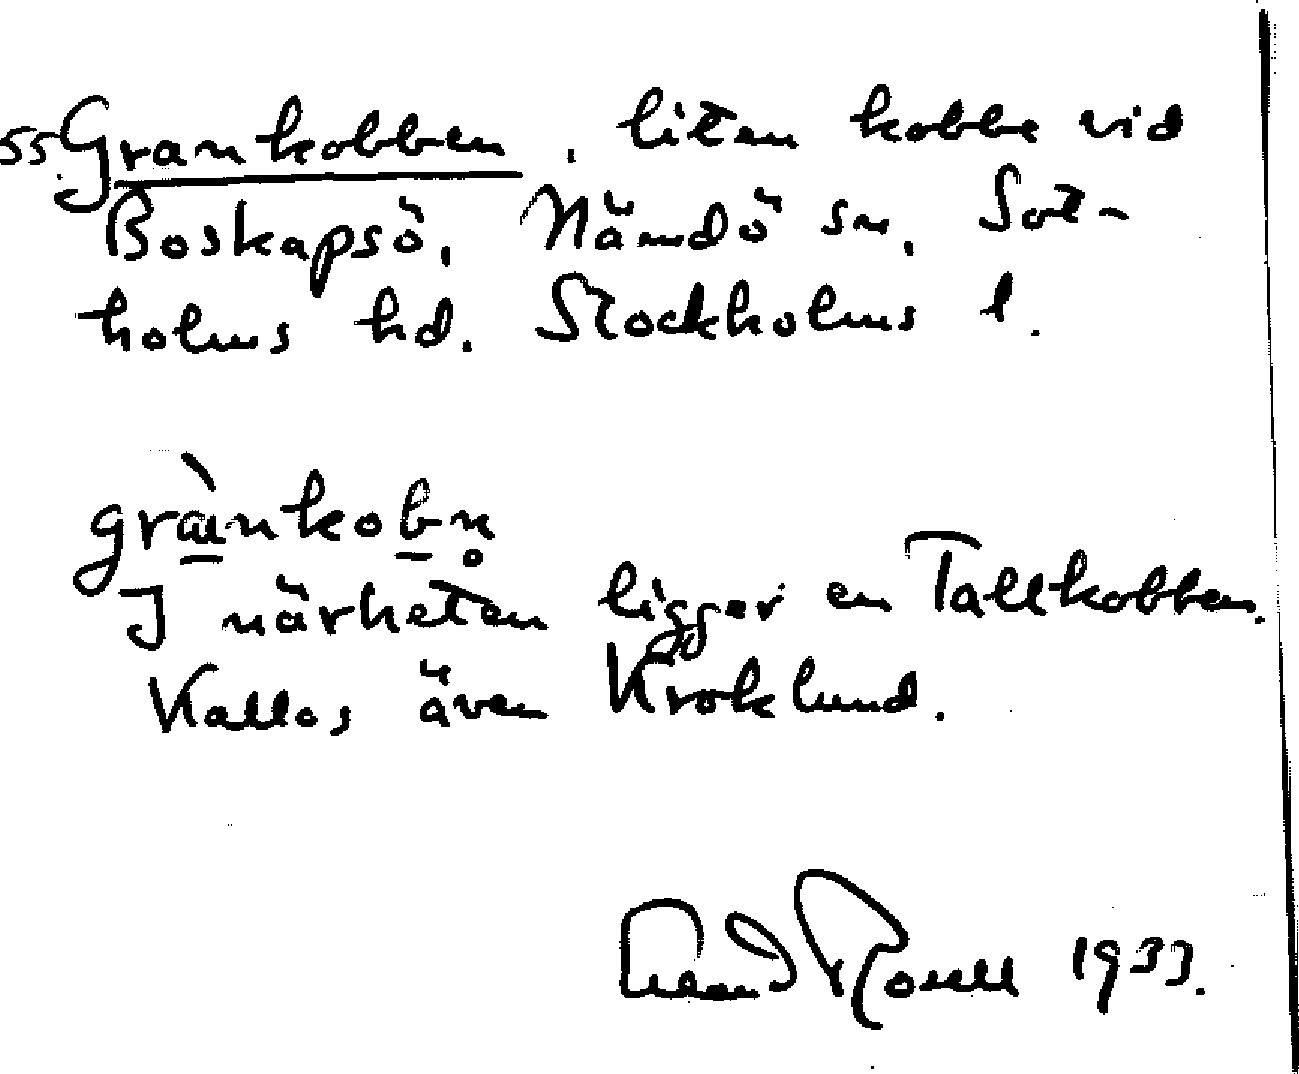 55. Grankobben, liten kobbe vid
Boskapsö, Nämdö sn, Sot-
holms hd. Stockholms l.
grànkobn̥
I närheten ligger en Tallkobben.
Kallas även Kroklund.
Rosell 1933.